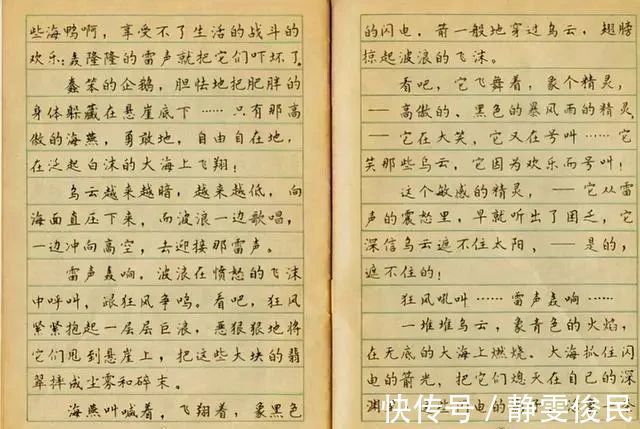 些海鸭啊，享受不了生活的战斗的
欢乐:轰隆隆的雷声就把它们吓坏了
蠢笨的企鹅，胆怯地把肥胖的
身体躲藏在悬崖底下……只有那高
傲的海燕，勇敢地，自由自在地，
在泛起白沫的大海上飞翔！
乌云越来越暗，越来越低，向
海面直压下来，而波浪一边歌唱，
一边冲向高空，去迎接那雷声。
雷声轰响。波浪在愤怒的飞沫
中呼叫，跟狂风争鸣。看吧，狂风
紧紧抱起一层层巨浪，恶狠狠地将
它们甩到悬崖上，把这些大块的翡
翠摔成尘雾和碎末。
海燕叫喊着，飞翔着，象黑色
的闪电。箭一般地穿过乌云，翅膀
掠起波浪的飞沫。
看吧，它飞舞着，象个精灵，
——高傲的、黑色的暴风雨的精灵
——它在大笑，它又在号叫……它
笑那些乌云，它因为欢乐而号叫！
这个敏感的精灵，——它从雷
声的震怒里，早就听出了困乏，它
深信乌云遮不住太阳，——是的，
遮不住的！
狂风吼叫……雷声轰响……
一堆堆乌云，象青色的火焰，
在无底的大海上燃烧。大海抓住闪
电的箭光，把它们熄灭在自己的深
渊
快传号／静雯俊民